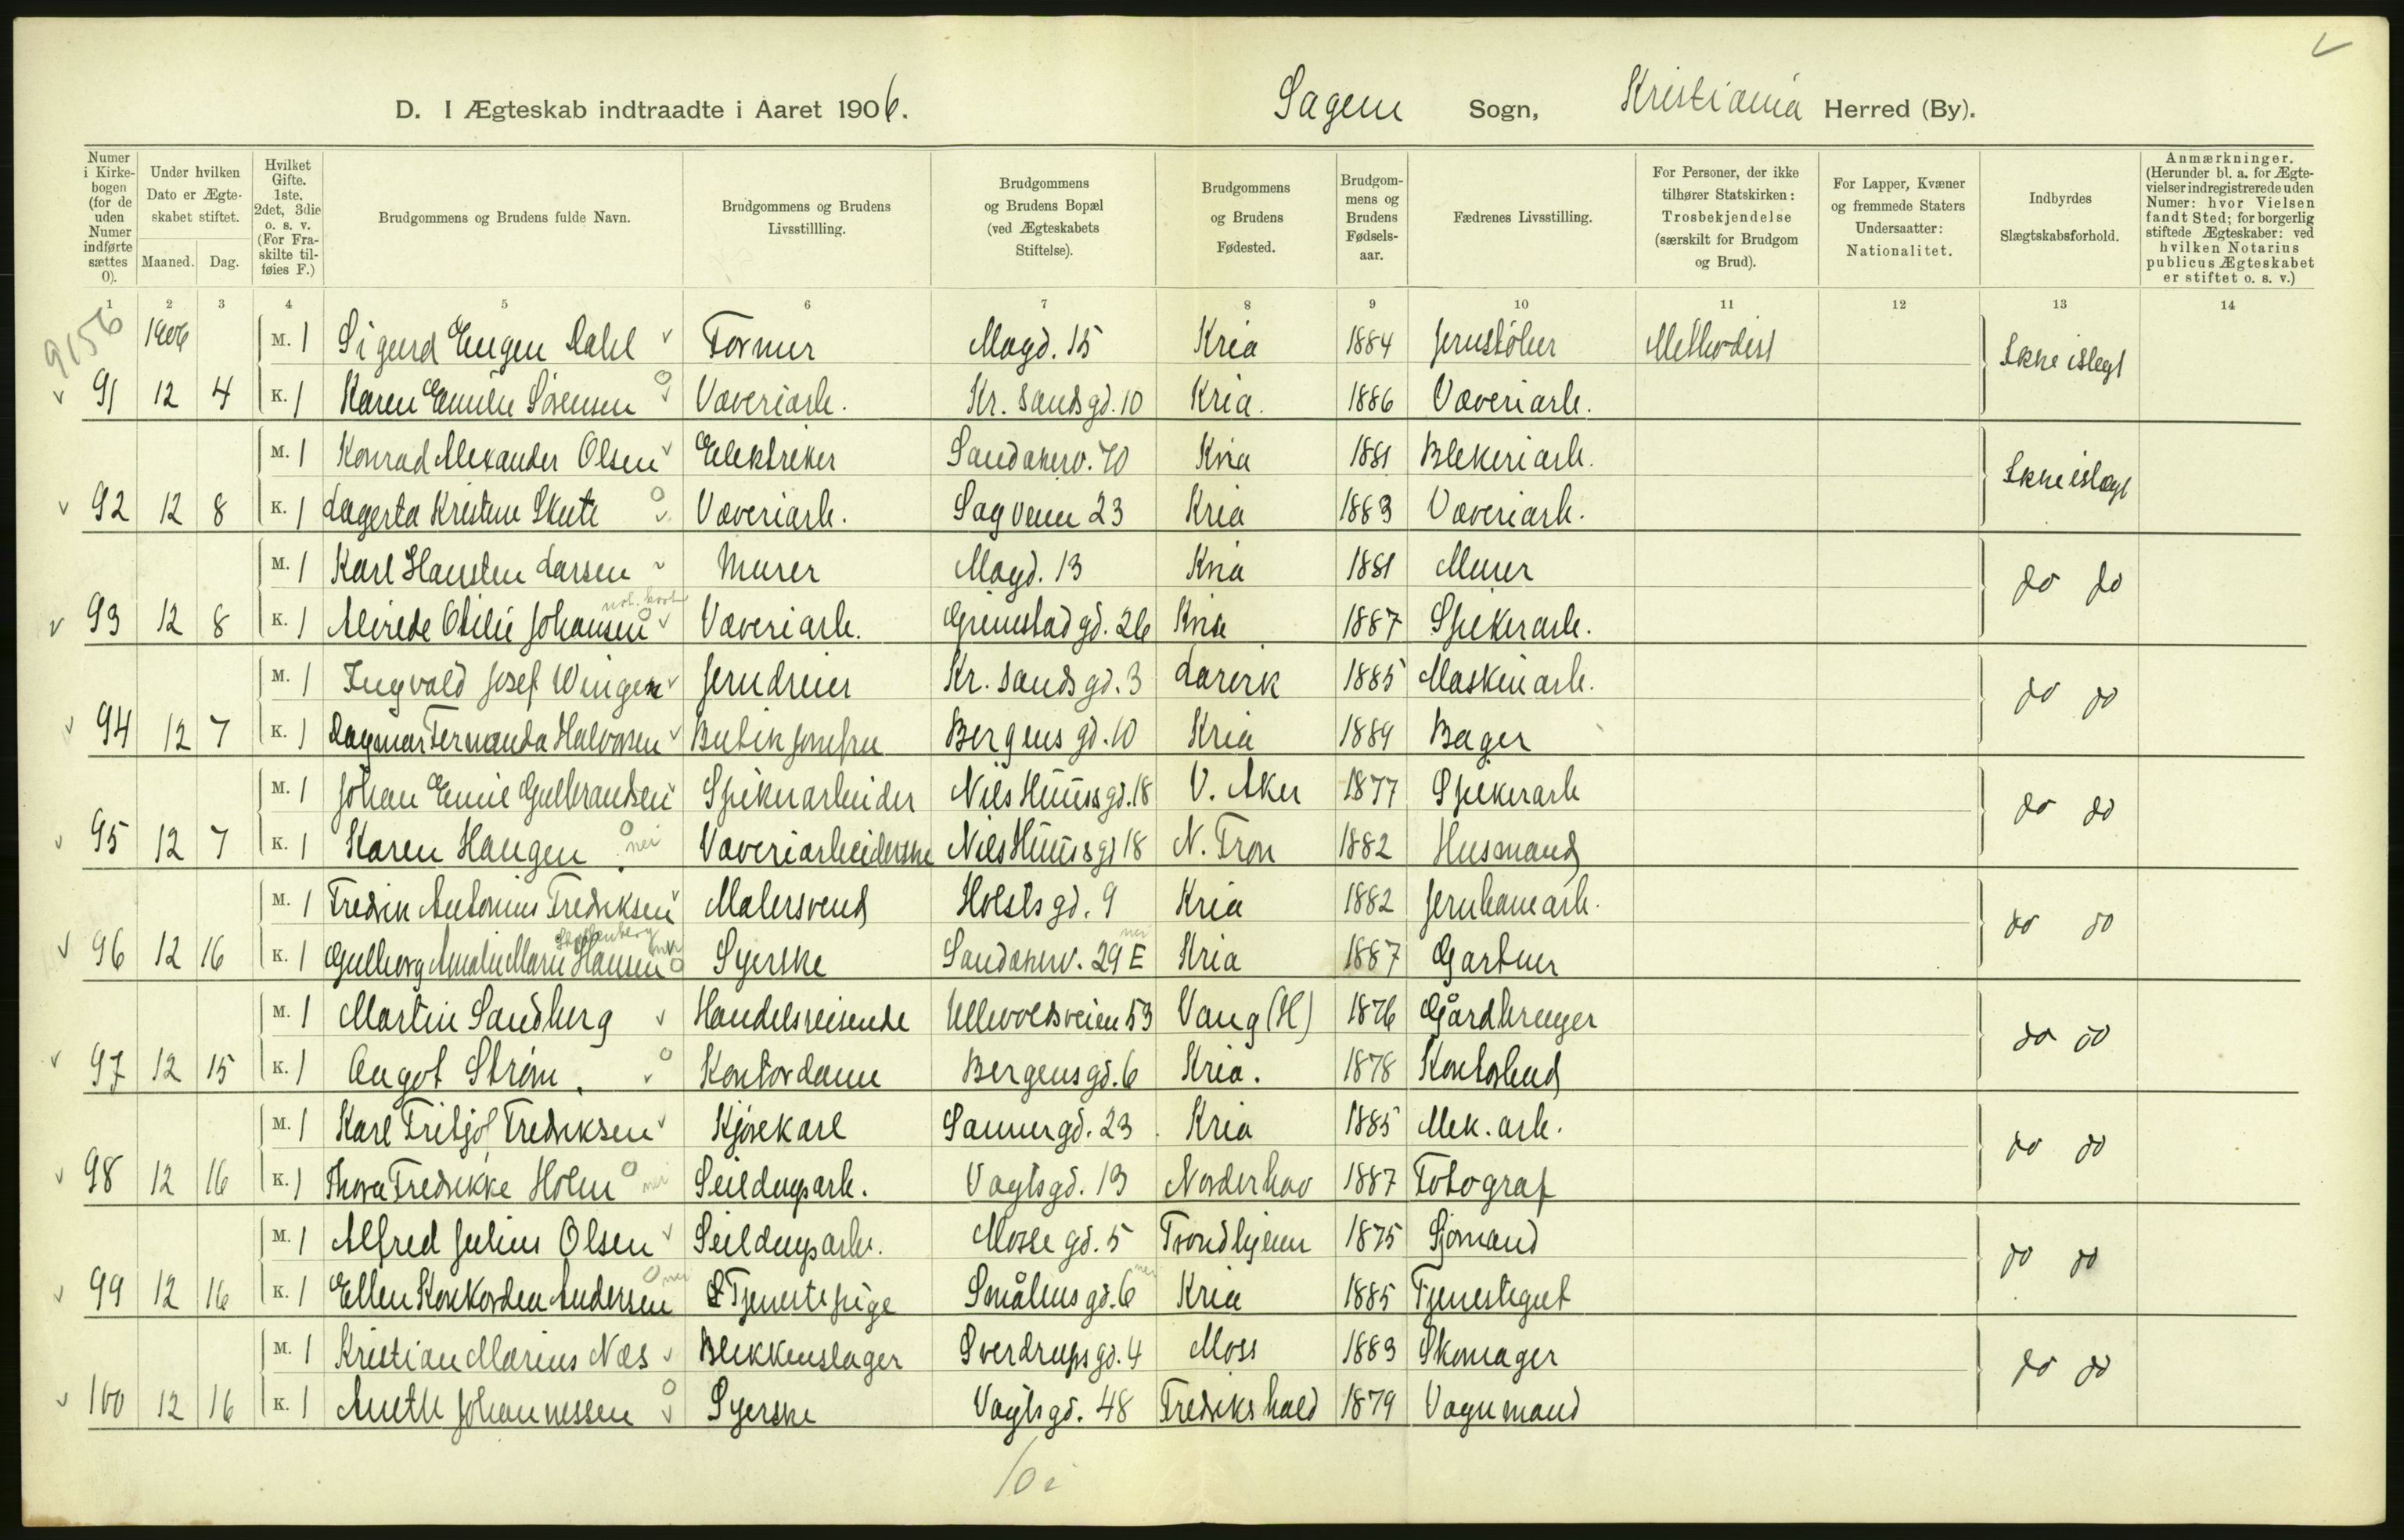 D. I Ægteskab indtraadte i Aaret 1906. Sagene Sogn, Kristiania Herred (By).
Numer i Kirkebogen (for de uden Numer indførte sættes 0).
Under hvilken Dato er Ægteskabet stiftet.
Maaned. Dag.
Hvilket Gifte. 1ste. 2det, 3die o. s. v. (For Fraskilte tilføies F.)
Brudgommens og Brudens fulde Navn.
Brudgommens og Brudens Livsstillling.
Brudgommens og Brudens Bopæl (ved Ægteskabets Stiftelse).
Brudgommens og Brudens Fødested.
Brudgommens og Brudens Fødselsaar.
Fædrenes Livsstilling.
For Personer, der ikke tilhører Statskirken: Trosbekjendelse (særskilt for Brudgom og Brud).
For Lapper, Kvæner og fremmede Staters Undersaatter: Nationalitet.
Indbyrdes Slægtskabsforhold.
Anmærkninger. (Herunder bl. a. for Ægtevielser indregistrerede uden Numer: hvor Vielsen fandt Sted; for borgerlig stiftede Ægteskaber: ved hvilken Notarius publicus Ægteskabet er stiftet o. s. v.)
1 2 3 4 5 6 7 8 9 10 11 12 13 14
9156
1906 M. 1 Sigurd Eugen Dahl Former Magd. 15 Kria 1884 Jernstöber Methodist Ikke i slegt
91 12 4 K. 1 Karen Emilie Sørensen Væveriarb. Kr. Sands gd. 10 Kria. 1886 Væveriarb.
M. 1 Konrad Alexander Olsen Elektriker Sandakerv. 70 Kria 1881 Blekeriarb. Ikke i slægt
92 12 8 K. 1 Lagerta Kristine Skute Væveriarb. Sagveien 23 Kria 1883 Væveriarb.
M. 1 Karl Hansten Larsen Murer Magd. 13 Kria 1881 Murer do do
93 12 8 K. 1 Otilie Johansen Væveriarb. Grimstad gd. 26 Kria 1887 Spikerarb.
M. 1 Ingvald Josef Wingen Jerndreier Kr. Sands gd. 3 Larvik 1885 Maskinarb. do do
94 12 7 K. 1 Dagmar Fernanda Halvorsen Butikjomfru Bergens gd. 10 Kria 1889 Bager
M. 1 Johan Emil Gulbrandsen Spikerarbeider Nils Huus gd. 18 V. Aker 1877 Spikerarb do do
95 12 7 K. 1 Karen Haugen nei Væveriarbeiderske Nils Huus gd 18 N. Fron 1882 Husmand
M. 1 Fredrik Antonius Fredriksen Malersvend Holsts gd. 9 Kria 1882 Jernbanearb. do do
96 12 16 K. 1 Gulborg Amalie Marie Hansen Syerske Sandakerv. 29 E nei Kria 1887 Gartner
M. 1 Martin Sandberg Handelsreisende Ullevoldsveien 53 Vang (H) 1876 Gårdbruger do do
97 12 15 K. 1 Aagot Strøm. Kontordame Bergensgd. 6 Kria. 1878 Kontorbud
M. 1 Karl Fritjof Fredriksen Kjørekarl Sannergd. 23 Kria 1885 Mek. arb. do do
98 12 16 K. 1 Thora Fredrikke Holm nei Seildugsarb. Vogtsgd. 13 Norderhov 1887 Fotograf
M. 1 Alfred Julius Olsen Seildugsarb. Mosse gd. 5 Trondhjem 1875 Sjømand do do
99 12 16 K. 1 Ellen Konkordia Andersen nei Tjenestepige Smålens gd. 6 nei Kria 1885 Tjenestegut
M. 1 Kristian Marius Næs Blikkenslager Sverdrups gd. 4 Moss 1883 Skomager do do
100 12 16 K. 1 Anette Johannessen Syerske Vogtsgd. 48 Fredrikshald 1879 Vognmand